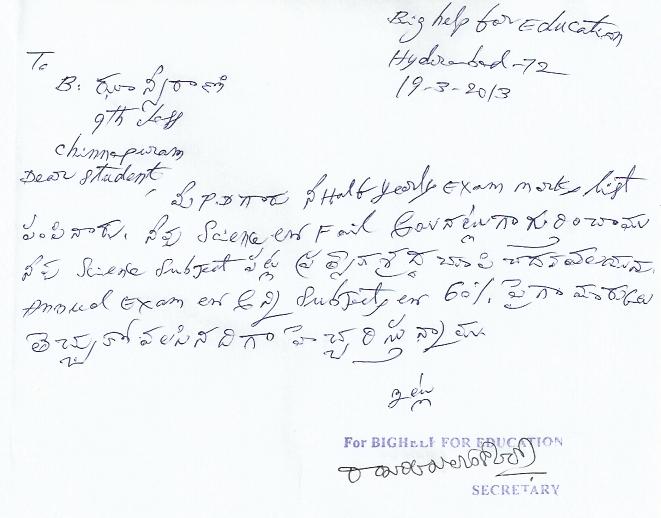 Big help for Education
Hyderabad-72
19-3-2013
To
B. ఝాన్సీరాణి
9th class
Chinnapuram
Dear student,
మీ P.D గారు నీ Half yearly Exam marks list
పంపినారు. నీవు Science లో Fail అయినట్లుగా గుర్తించాము
నీవు Science Subject పట్ల ప్రత్యేక శ్రద్ధ చూపి చదవవలయును.
Annual Exam లో అన్ని Subjects లో 60% పైగా మార్కులు
తెచ్చుకోవలసినదిగా హెచ్చరిస్తున్నాము.
ఇట్లు
For BIGHELP FOR EDUCATION
SECRETARY